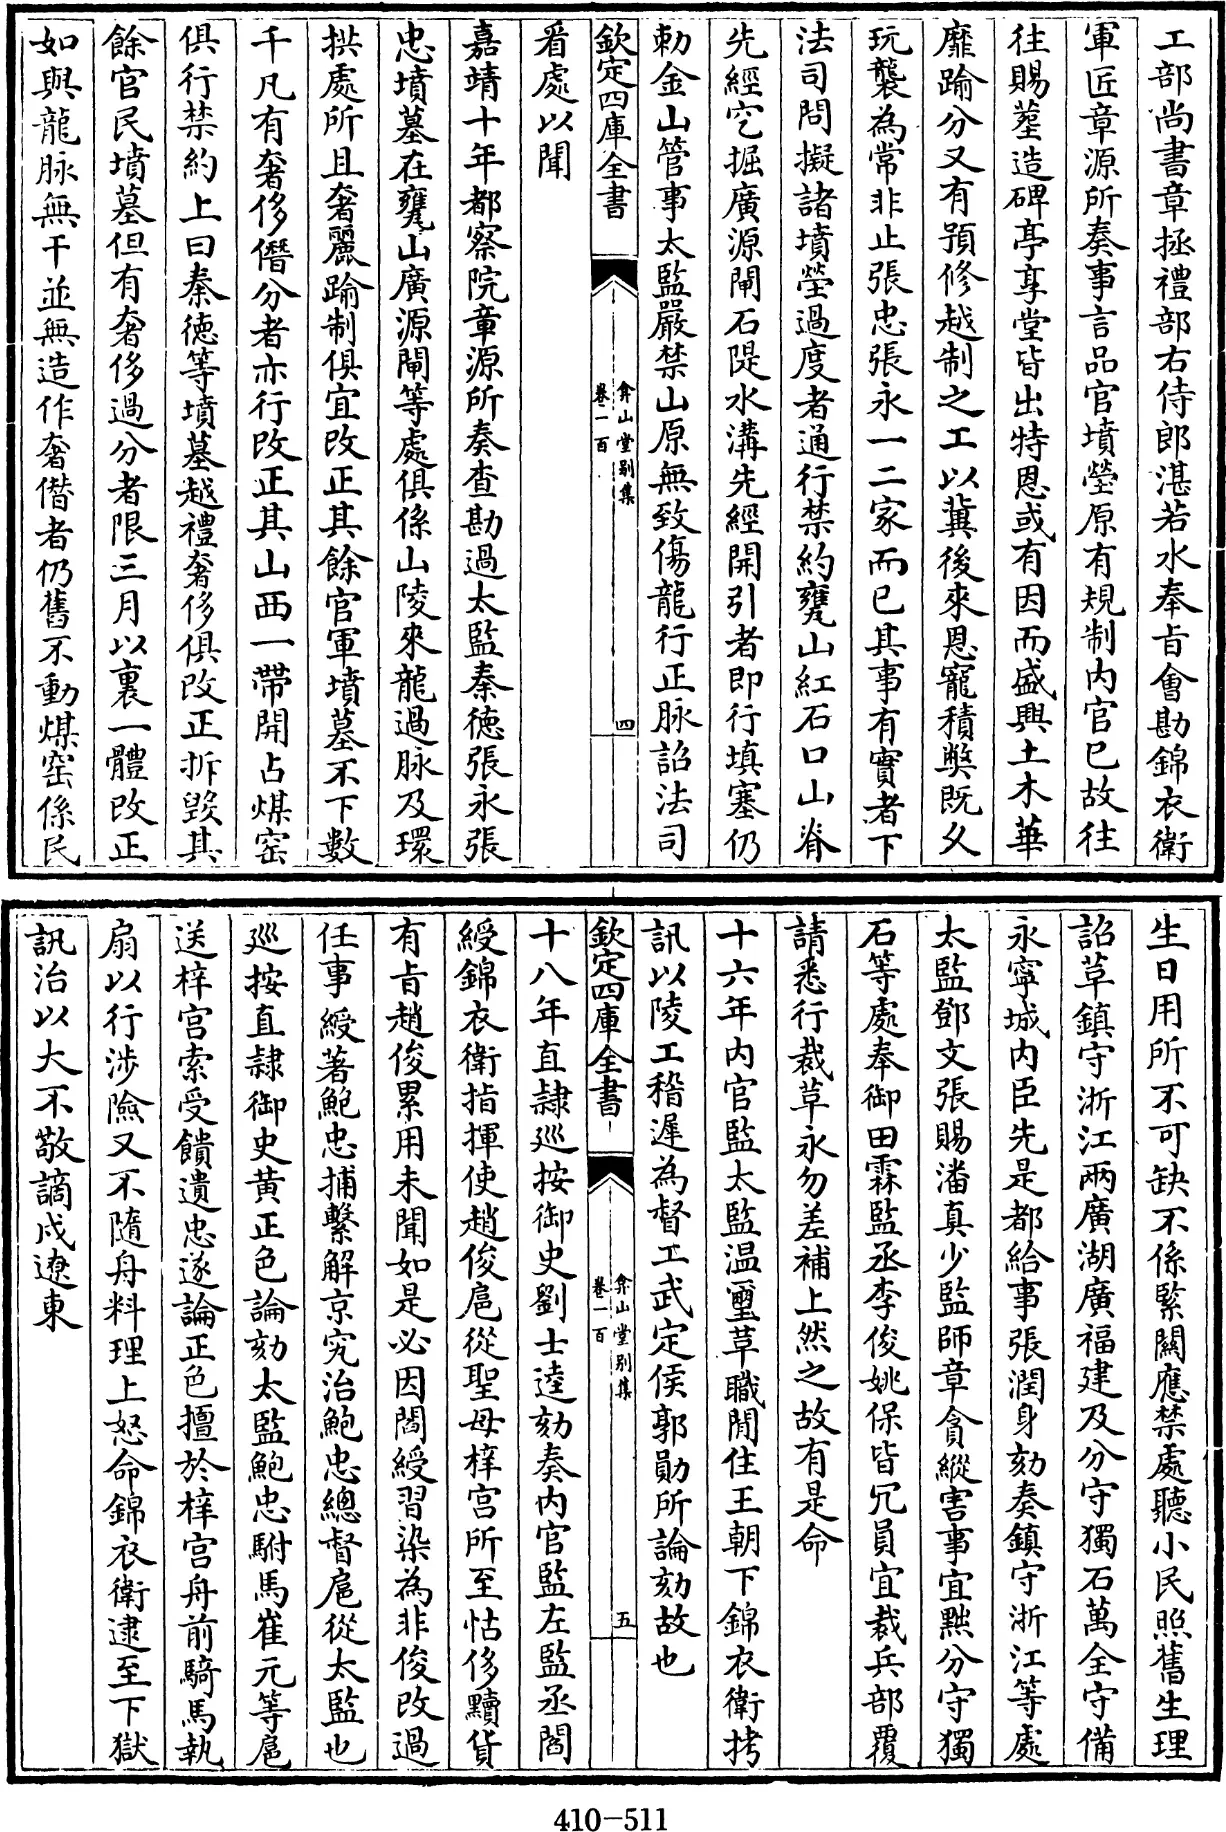 工部尚書章拯禮部右侍郎湛若水奉旨會勘錦衣衛
軍匠章源所奏事言品官墳塋原有規制内官已故往
往賜塟造碑亭享堂皆出特恩或有因而盛興土木華
靡踰分又有預修越制之工以冀後來恩寵積獘既乆
玩襲為常非止張忠張永一二家而已其事有實者下
法司問擬諸墳塋過度者通行禁約甕山紅石口山脊
先經穵掘廣源閘石隄水溝先經開引者即行填塞仍
勅金山管事太監嚴禁山原無致傷龍行正脉詔法司
看處以聞
欽定四庫全書
弇山堂别集
卷一百
四
嘉靖十年都察院章源所奏查勘過太監秦徳張永張
忠墳墓在甕山廣源閘等處俱係山陵來龍過脉及環
拱處所且奢麗踰制俱宜改正其餘官軍墳墓不下數
千凡有奢侈僭分者亦行改正其山西一帶開占煤窑
俱行禁約上曰秦徳等墳墓越禮奢侈俱改正拆毁其
餘官民墳墓但有奢侈過分者限三月以裏一體改正
如與龍脉無干並無造作奢僣者仍舊不動煤窑係民
生日用所不可缺不係緊關應禁處聽小民照舊生理
詔革鎮守浙江兩廣湖廣福建及分守獨石萬全守備
永寧城内臣先是都給事張潤身劾奏鎮守浙江等處
太監鄧文張賜潘真少監師章貪縱害事宜黜分守獨
石等處奉御田霖監丞李俊姚保皆冗員宜裁兵部覆
請悉行裁革永勿差補上然之故有是命
十六年内官監太監温璽革職閒住王朝下錦衣衛拷
訊以陵工稽遲為督工武定侯郭勛所論劾故也
欽定四庫全書
弇山堂别集
卷一百
五
十八年直隸巡按御史劉士逵劾奏内官監左監丞閻
綬錦衣衛指揮使趙俊扈從聖母梓宫所至怙侈黷貨
有旨趙俊累用未聞如是必因閻綬習染為非俊改過
任事綬著鮑忠捕繫解京究治鮑忠總督扈從太監也
巡按直隸御史黄正色論劾太監鮑忠駙馬崔元等扈
送梓宫索受饋遺忠遂論正色擅於梓宫舟前騎馬執
扇以行涉險又不隨舟料理上怒命錦衣衛逮至下獄
訊治以大不敬謫戍遼東
410-511